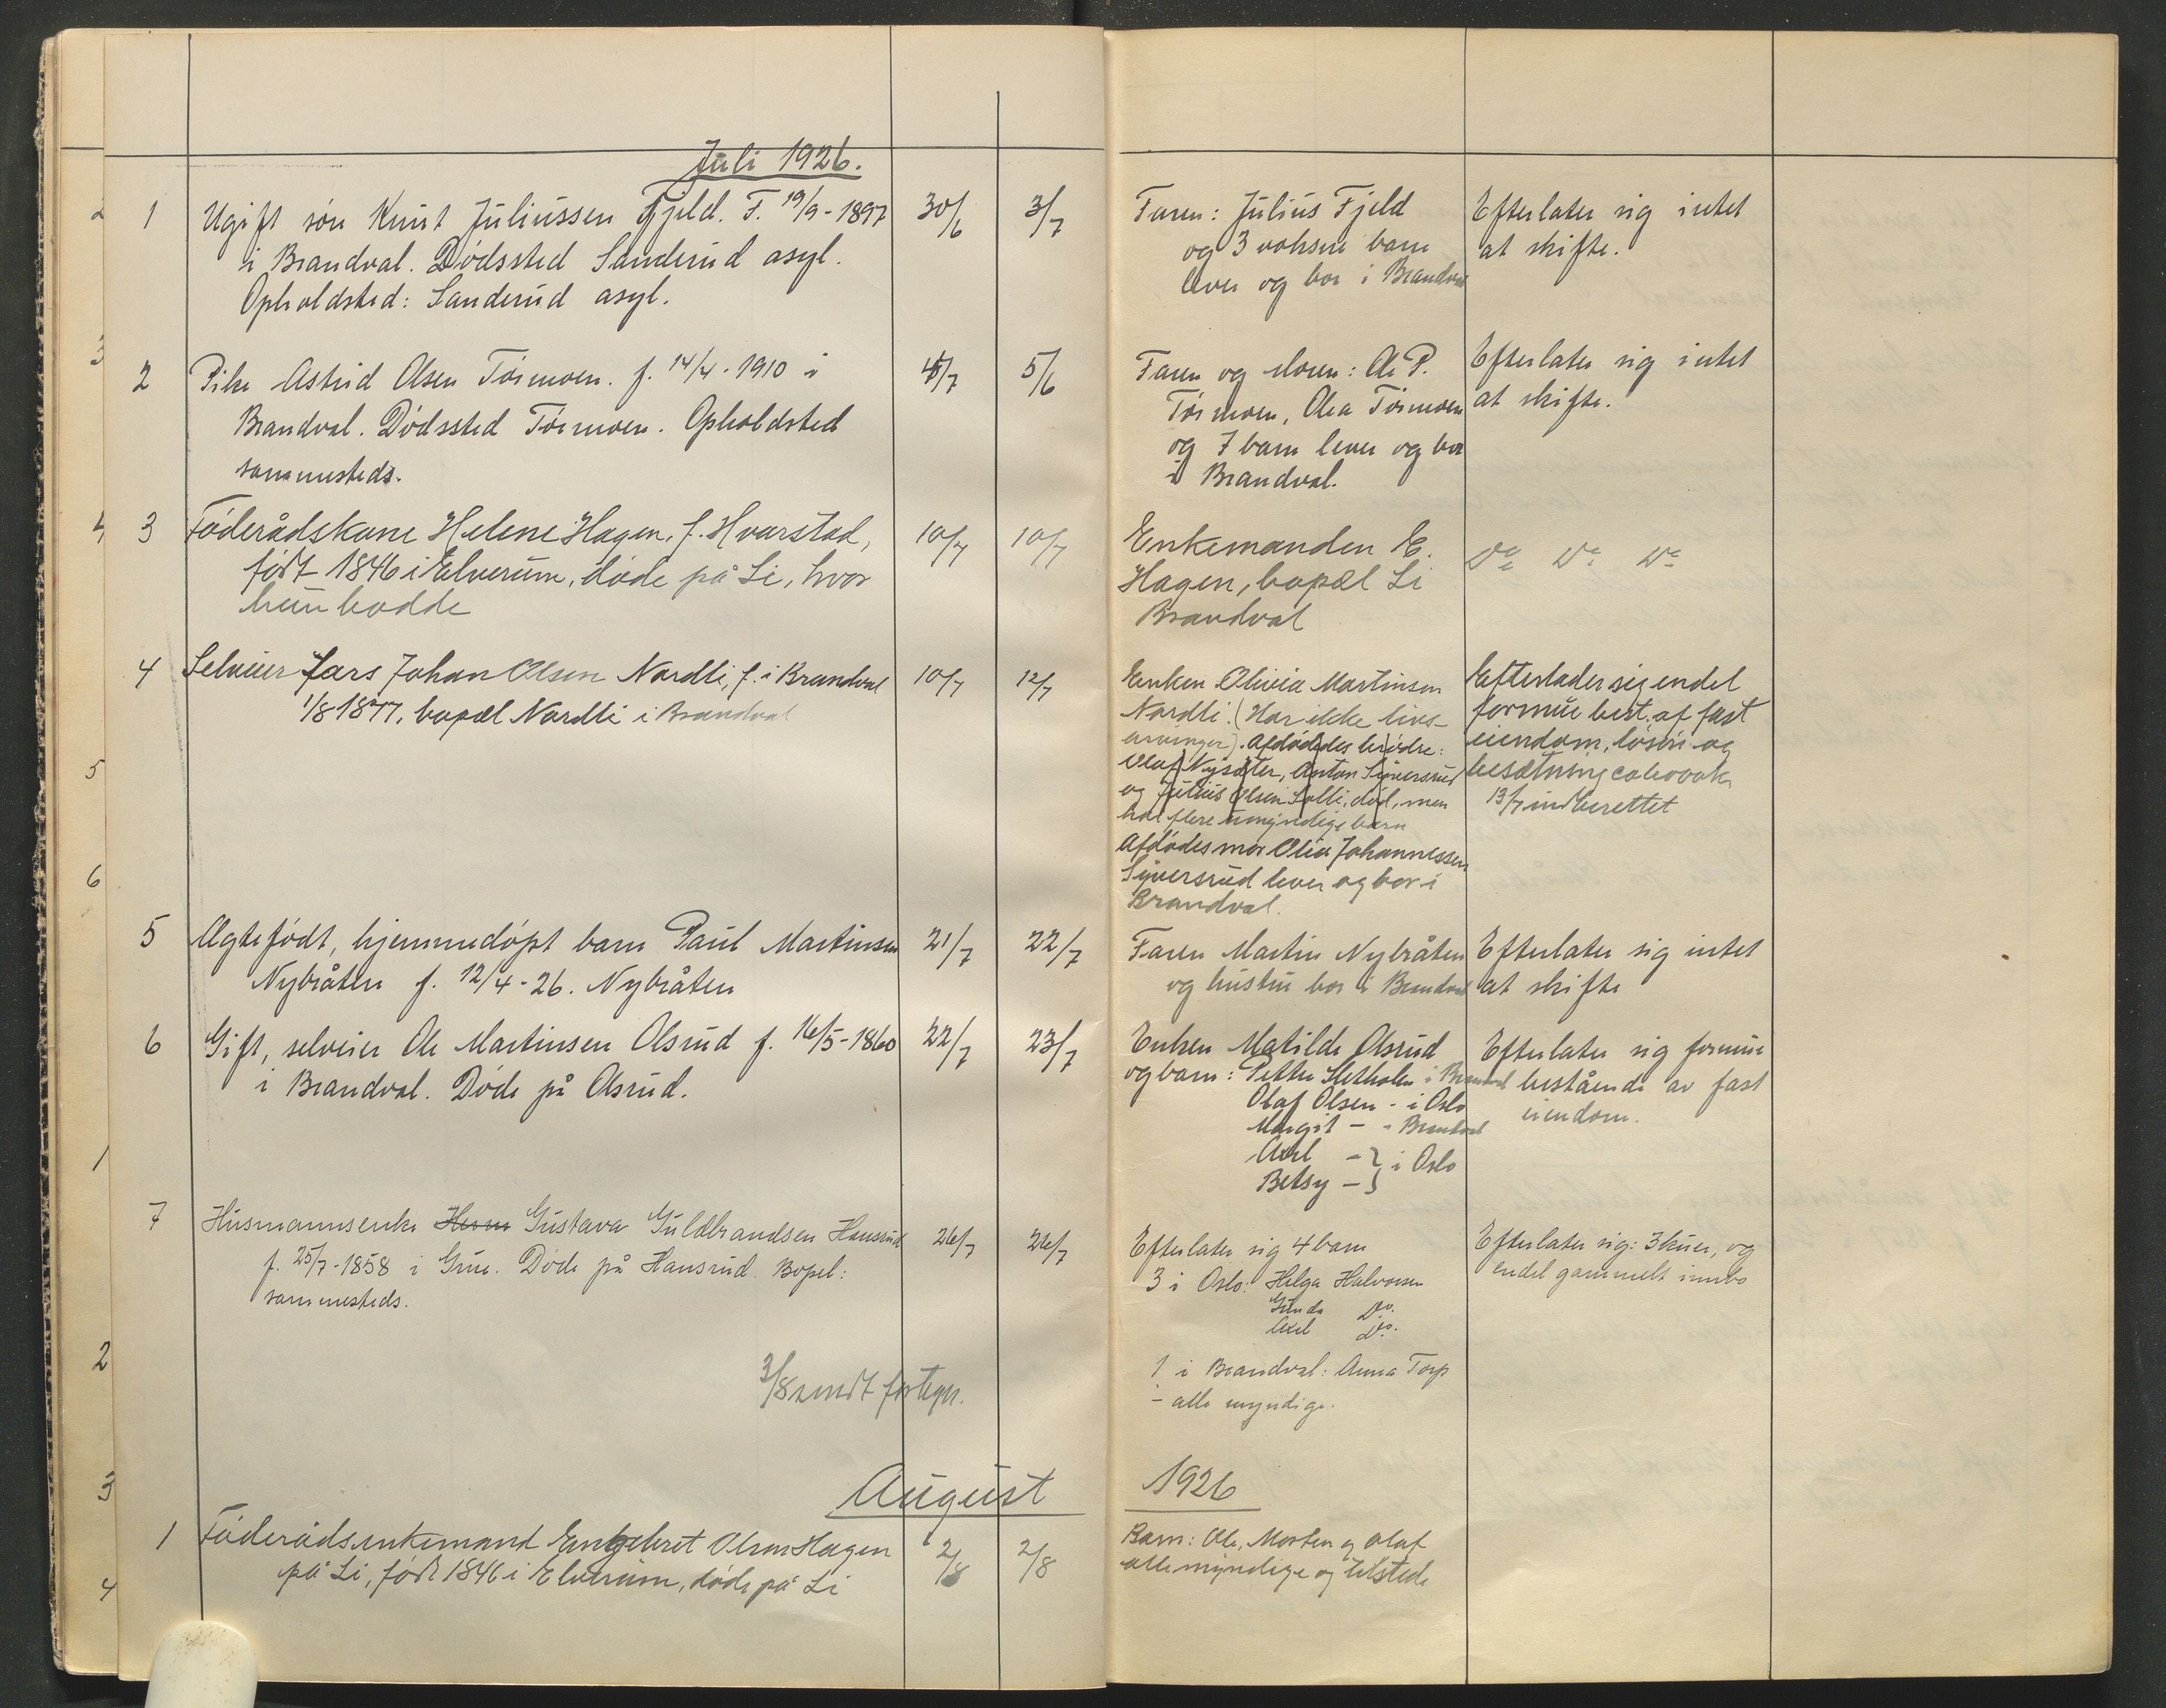 Juli 1926.
1 Ugift søn Knut Juliussen Fjeld. F. 19/9-1897 30/6 3/7
i Brandval. Dødssted Sanderud asyl.
Opholdsted: Sanderud asyl.
Faren: Julius Fjeld
og 3 voksne barn
lever og bor i Brandval
Efterlater sig intet
at skifte.
2 Pike Astrid Olsen Tørmoen. f. 14/4-1910 i 4/7 5/6
Brandval. Dødssted Tørmoen. Opholdsted
sammesteds.
Faren og Moren: Ole P.
Tørmoen, Olea Tørmoen
og 7 barn lever og bor
i Brandval.
Efterlater sig intet
at skifte.
3 Føderådskone Helene Hagen, f. Hvarstad, 10/7 10/7
født 1846 i Elverum, døde på Li, hvor
hun bodde
Enkemanden E.
Hagen, bopæl Li
Brandval
Do Do Do
4 Selveier Lars Johan Olsen Nordli, f. i Brandval 10/7 12/7
1/8 1877, bopæl Nordli i Brandval
Enken Olivia Martinsen
Nordli. (Har ikke livs
arvinger). Afdødedes brødre:
Olaf Nysæter, Anton Syversrud
og Julius Olsen Solli, död, men
har flere umyndige barn
Afdødes mor Olia Johannessen
Syversrud lever og bor i
Brandval.
Efterlader sig endel
formue best. af fast
eiendom, løsøre og
besætning
13/7 indberettet
5 Ægtefødt, hjemmedøpt barn Paul Martinsen 21/7 22/7
Nybråten f. 12/4-26. Nybråten
Faren Martin Nybråten
og hustru bor i Brandval
Efterlater sig intet
at skifte
6 Gift, selveier Ole Martinsen Olsrud f. 16/5-1860 22/7 23/7
i Brandval. Døde på Olsrud.
Enken Matilde Olsrud
og barn: Petter Sletholen i Brandval
Olaf Olsen - i Oslo
Margit - - Brandval
Axel - } i Oslo
Betsy - }
Efterlater sig formue
bestående av fast
eiendom.
7 Husmannsenke Gustava Guldbrandsen Hansrud 26/7 26/7
f. 25/7-1858 i Grue. Døde på Hansrud. Bopel:
sammesteds.
Efterlater sig 4 barn
3 i Oslo: Helga Halvorsen
Gunda Do.
Axel Do.
1 i Brandval: Anna Torp
- alle myndige.
Efterlater sig: 3 kuer, og
endel gammelt innbo
3/8 sendt fortegn.
August 1926
1 Føderådsenkemand Engebret Olsen Hagen 2/8 2/8
på Li, født 1846 i Elverum, døde på Li
Barn: Ole, Morten og Olaf
alle myndige og tilstede
2
3
4
5
6
1
2
3
4